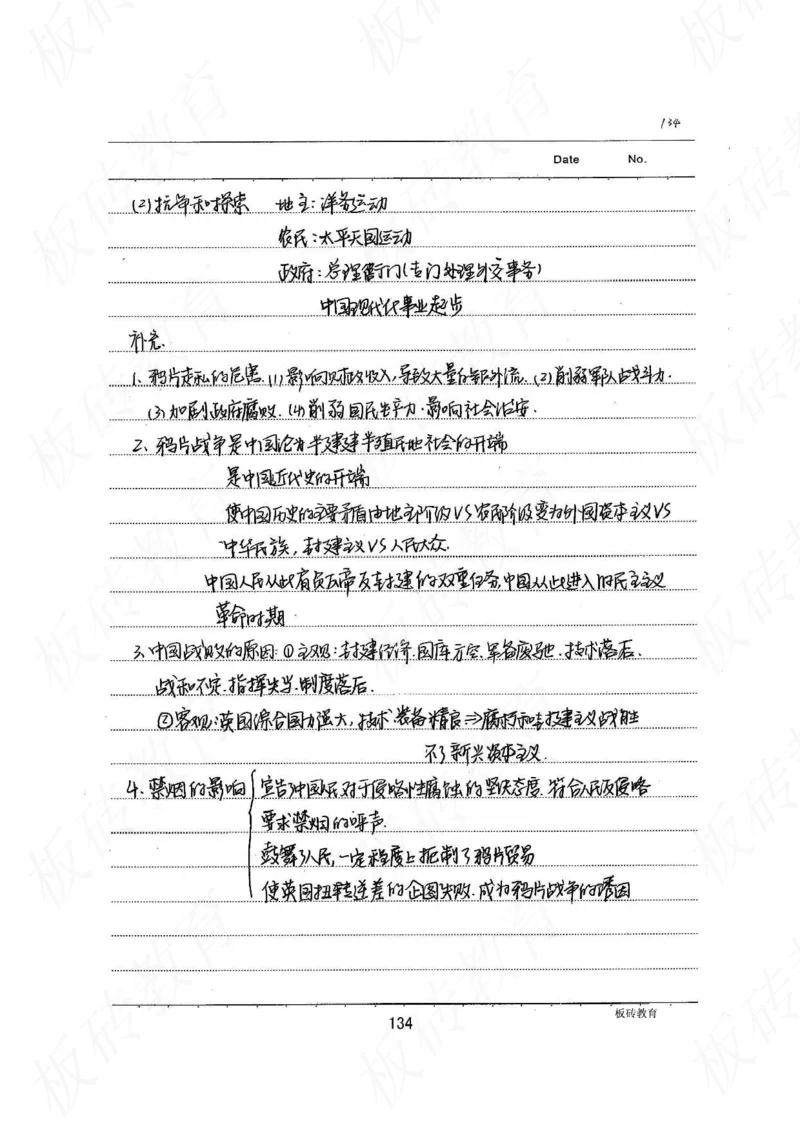 134
Date No.
(2)抗争和探索 地主:洋务运动
农民:太平天国运动
政府:总理衙门(专门处理外交事务)
中国现代化事业起步
补充.
1、鸦片走私的危害.(1)影响财政收入,导致大量白银外流.(2)削弱军队战斗力.
(3)加剧政府腐败.(4)削弱国民生产力.影响社会治安.
2、鸦片战争是中国沦为半封建半殖民地社会的开端
是中国近代史的开端
使中国历史的主要矛盾由地主阶级VS农民阶级变为外国资本主义VS
中华民族,封建主义VS人民大众.
中国人民从此肩负反帝反封建的双重任务,中国从此进入旧民主主义
革命时期.
3、中国战败的原因:①主观:封建经济.国库亏空.军备废弛.技术落后.
战和不定.指挥失当.制度落后.
②客观:英国综合国力强大,技术、装备精良⇒腐朽和封建主义战胜
不了新兴资本主义.
4、禁烟的影响 宣告中国人民对于侵略性腐蚀的坚决态度.符合人民反侵略
要求禁烟的呼声.
鼓舞了人民,一定程度上扼制了鸦片贸易
使英国扭转逆差的企图失败.成为鸦片战争的诱因
134
板砖教育